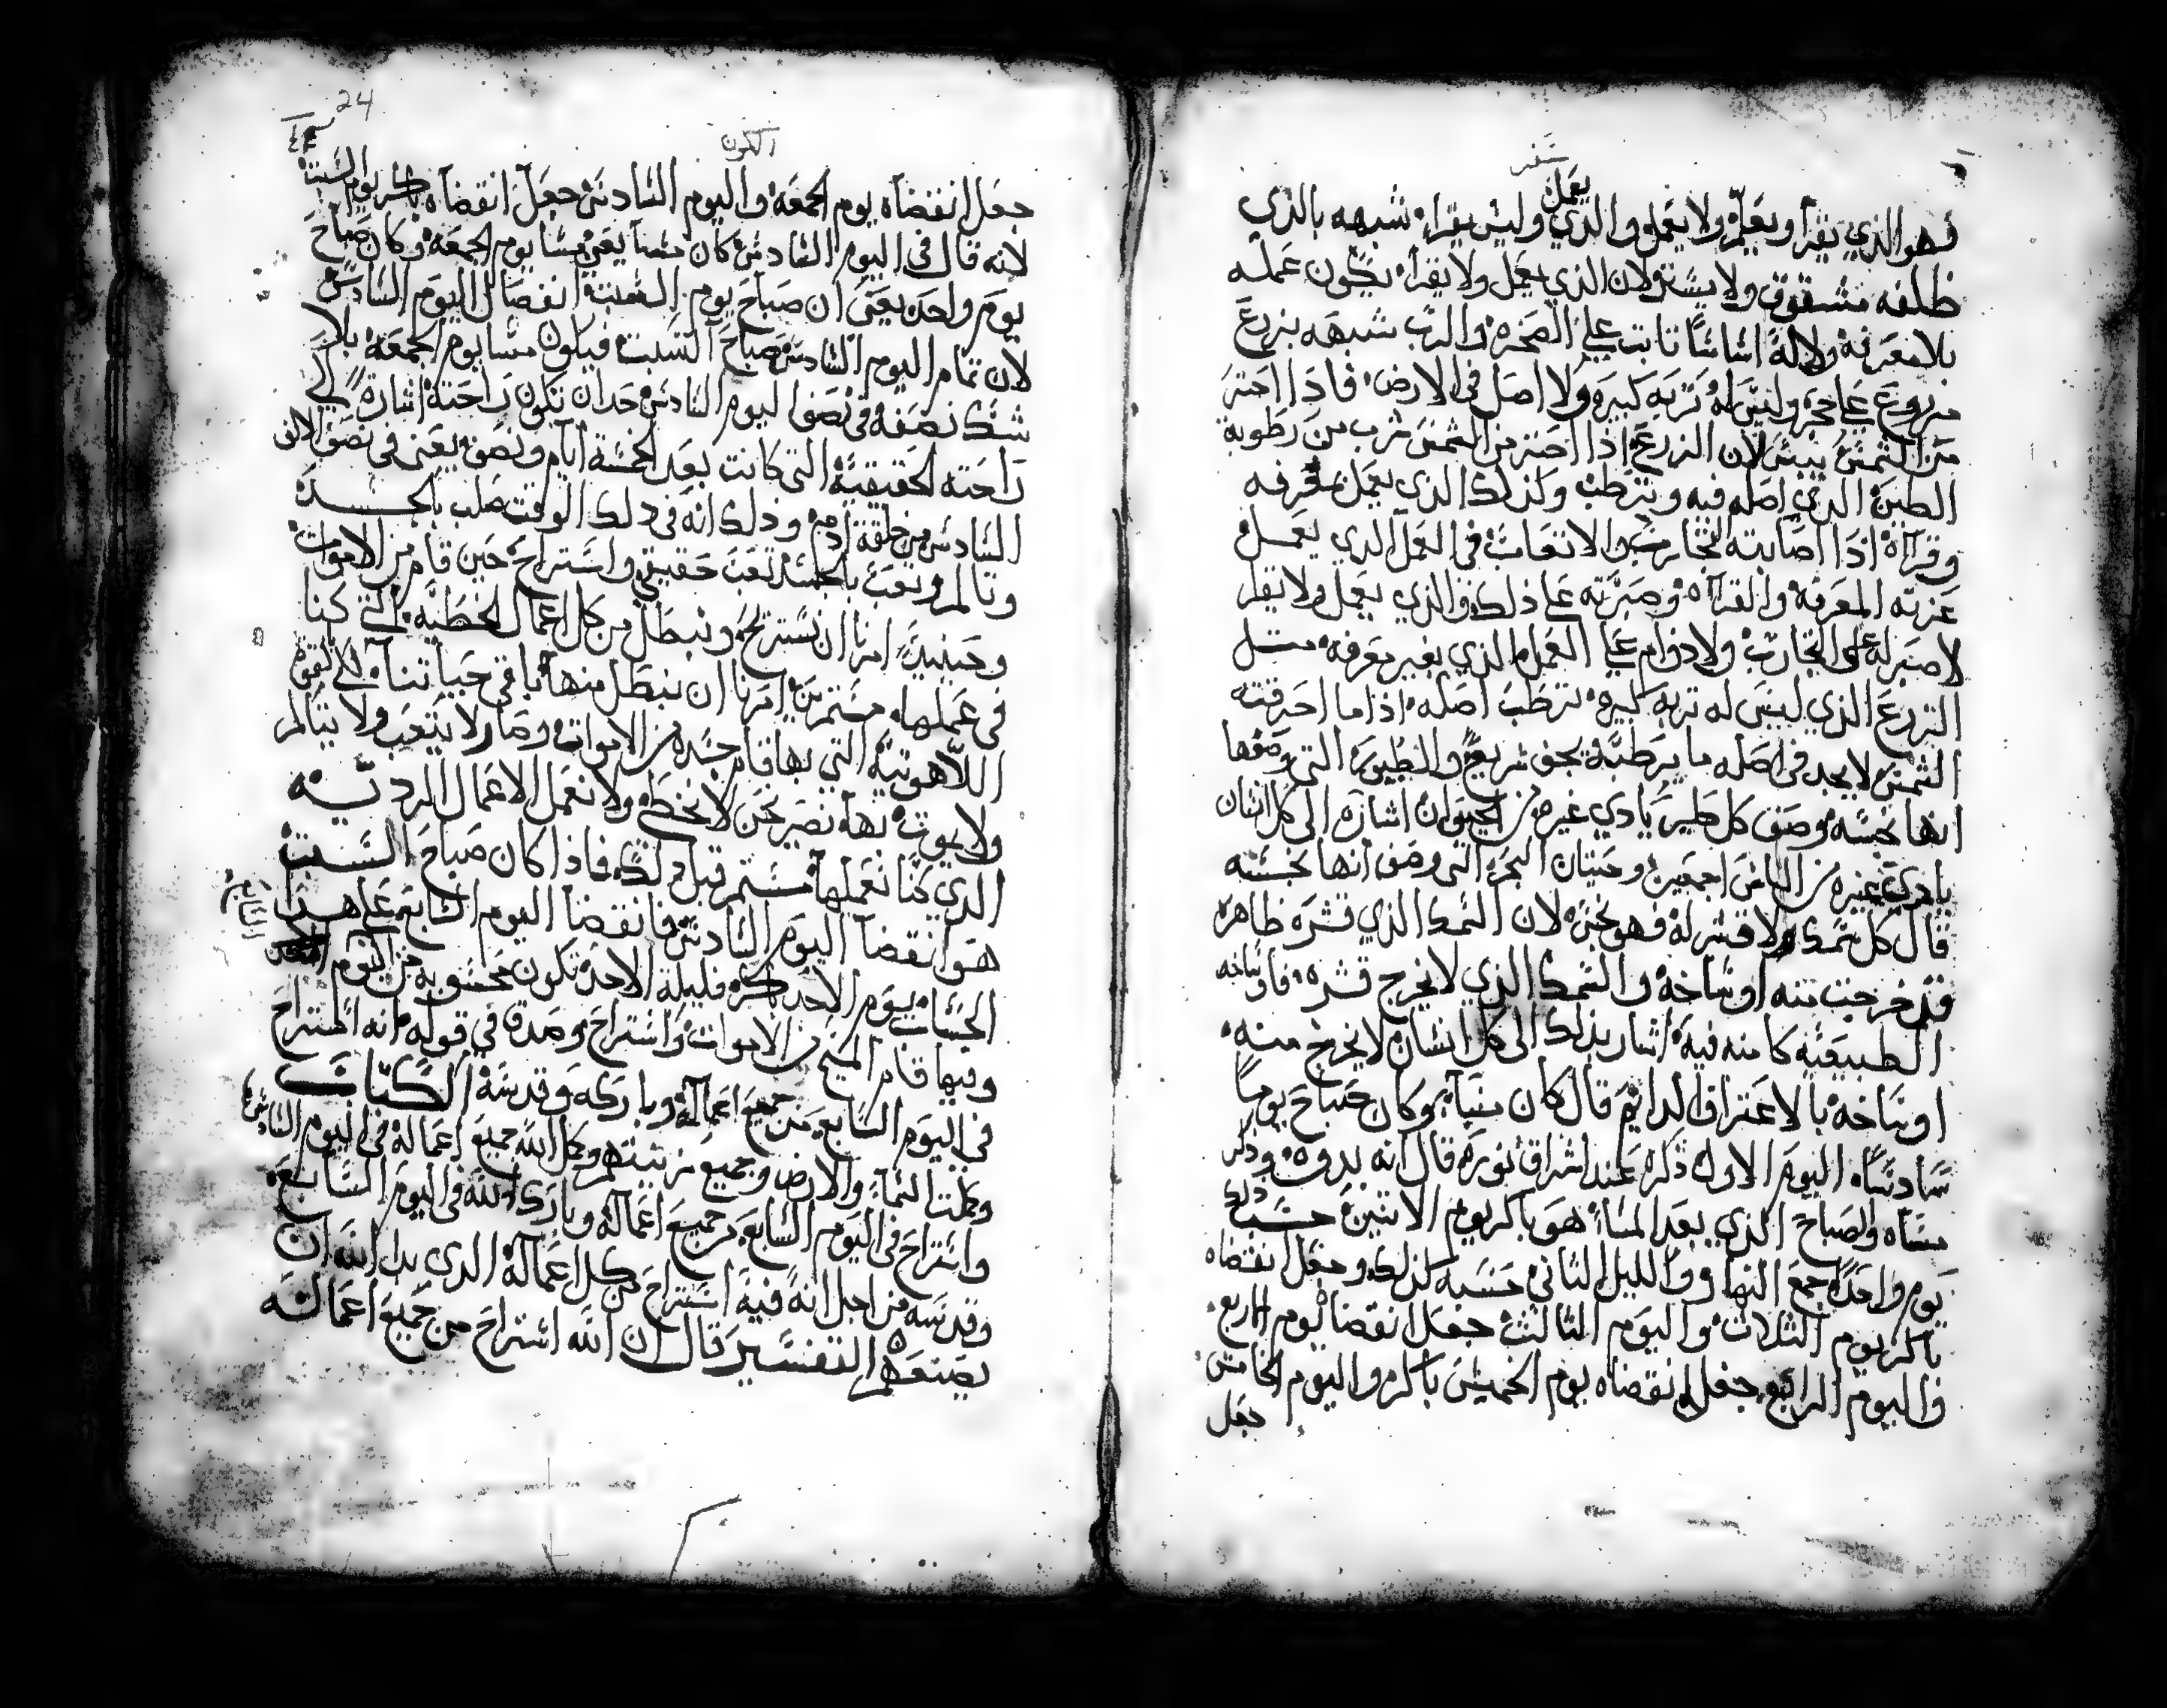 سفر
فهو الذي يقرا ويعلم ولا يعمل والذي يعمل وليس يقراء شبهه بالذي
ظلفه مشقوق ولا يشتر لان الذي يعمل ولا يقراء يكون عمله
بلا معرفه ولا له اساسًا تابت علي الصخره والرب شبهه بزرع
مزروع علي حجر وليس له تربه كبيره ولا اصل في الارض فاذا احتر
من الشمس يبس لان الزرع اذا احتر من الشمس شرب من رطوبة
الطين الذي اصله فيه ويترطب ولذلك الذي يعمل بمعرفه
وقراة اذا اصابته التجارب والاتعاب في العمل الذي يعمل
عزته المعرفه والقراه وصبرته علي ذلك والذي يعمل ولا يقرا
لا صبر له علي التجارب ولا دوام علي العمل الذي بغير معرفه مثل
الزرع الذي ليس له تربه كبيره ترطب اصله اذا ما احرقته
الشمس لا يجد في اصله ما يرطبه يجف سريع والطيور التي وصفها
انها نجسه وصف كل طير يادي غيره من الحيوان اشاره الي كل انسان
يادي غيره من الناس اجمعين وحيتان البحر التي وصف انها نجسه
قال كل سمك ولا قشر له فهو نجس لان السمك الذي قشره ظاهره
قد خرجت منه اوساخه والسمك الذي لا يخرج قشره فاوساخه
الطبيعيه كامنه فيه اشار بذلك الي كل انسان لا يخرج منه
اوساخه بالاعتراف الدايم قال كان مساء وكان صباح يومًا
سادسًا اليوم الاول ذكره عند اشراق نوره قال انه بدوه وذكر
مساه والصباح الذي بعد المساء هو باكر يوم الاثنين حسب ذلك
يوم واحدًا جمع النهار والليل الثاني حسبه كذلك وجعل انقضاه
باكر يوم الثلاث واليوم الثالث جعل انقضاه يوم الاربع
واليوم الرابع جعل انقضاه يوم الخميس باكر واليوم الخامس
جعل
24
الكون
جعل انقضاه يوم الجمعه واليوم السادس جعل انقضاه باكر يوم السبت
لانه قال في اليوم السادس كان مساء يعني مسا يوم الجمعه وكان صباح
يوم واحد يعني ان صباح يوم السبت انفصال اليوم السادس
لان تمام اليوم السادس صباح السبت فيكون مسا يوم الجمعة بلا
شك نصفه في نصف اليوم السادس حد ان تكون راحته اشارة الي
راحته الحقيقية التي كانت بعد الخمسة ايام ونصف يعني في نصف الالف
السادس من خلقة ادم وذلك انه في ذلك الوقت صلب بالجسد
وتالم وتعب بالجسد تعب حقيقي واستراح حين قام من الاموات
وحينيذ امرنا ان نستريح ونبطل من كل اعمال الخطيه التي كنا
في عملها مستمرين امرنا ان نبطل منها باقي حياتنا لان القوه
اللاهوتية التي بها قام جسده من الاموات وصار لا يتعب ولا يتالم
ولا يموت بها نصير نحن لا نخطي ولا نعمل الاعمال الرديه
الذي كنا نعملها مستمر قبل ذلك فاذا كان صباح السبت
هو انقضا اليوم السادس فانقضا اليوم السابع علي هذا
الحساب يوم الاحد بكره فليلة الاحد تكون محسوبه من اليوم السابع
وفيها قام المسيح من الاموات واستراح وصدق في قوله انه استراح
في اليوم السابع من جميع اعماله وباركه وقدسه الكتاب
وكملت السماء والارض وجميع زينتهم وكمل الله جميع اعماله في اليوم السادس
واستراح في اليوم السابع من جميع اعماله وبارك الله في اليوم السابع
وقدسه من اجل انه فيه استراح من كل اعماله الذي بدا الله ان
يصنعهم التفسير قال ان الله استراح من جميع اعماله